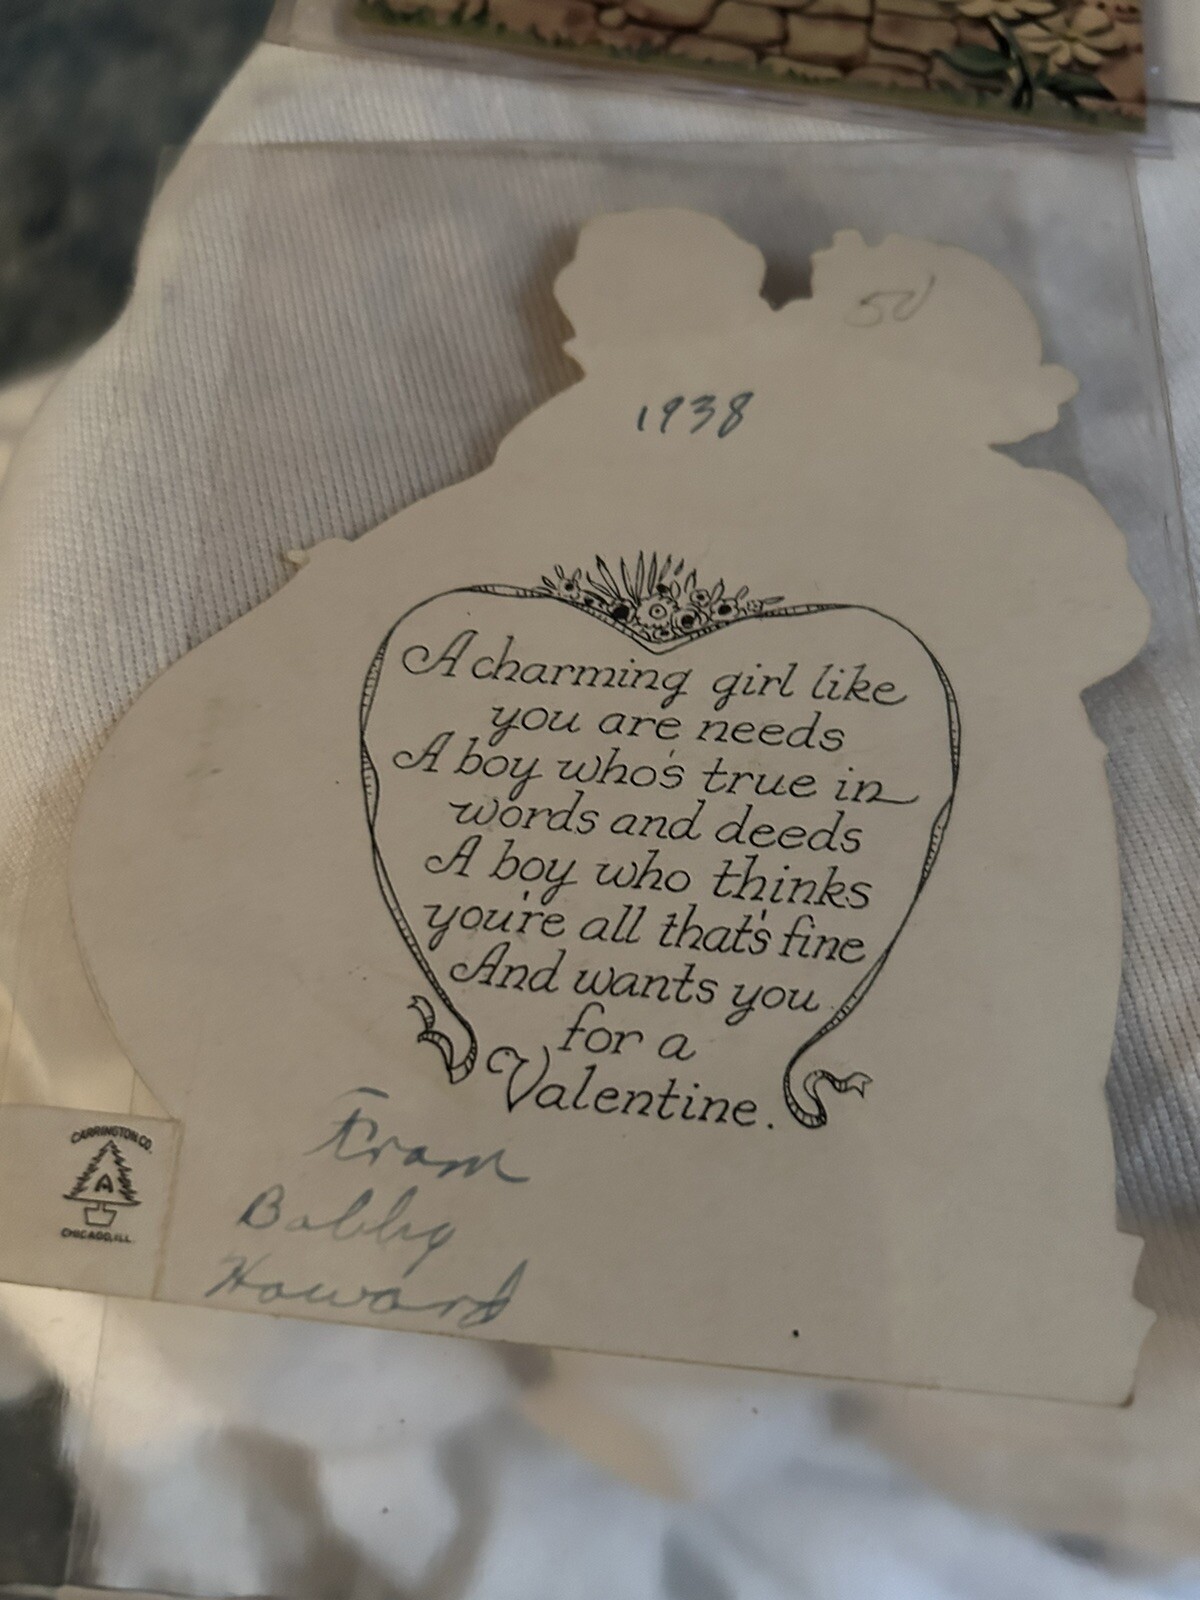 1938
A charming girl like
you are needs
A boy who's true in
words and deeds
A boy who thinks
you're all that's fine
And wants you
for a
Valentine.
From
Bobby
Howard
CARRINGTON CO.
A
CHICAGO, ILL.